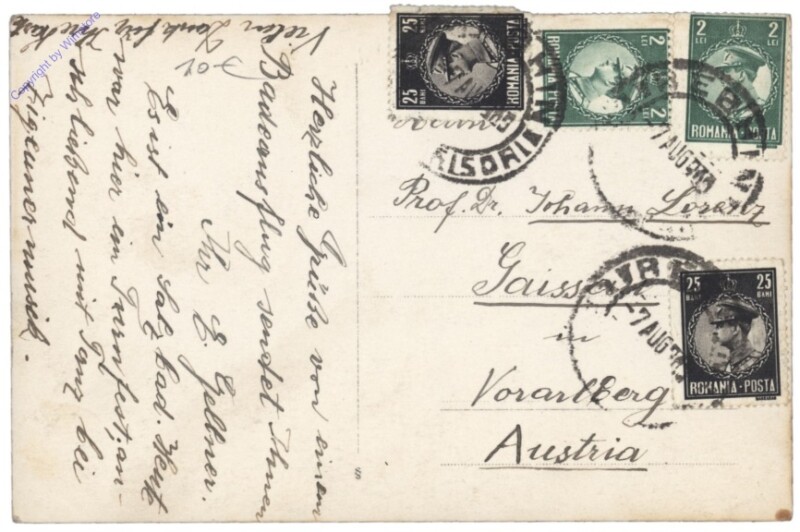 Vielen Dank für Ihre Karte
Herzliche Grüße von einem
Badeausflug sendet Ihnen
Ihr E. Gellner.
Es ist ein Salzbad. Heute
war hier ein Turnfest, an-
schließend mit Tanz bei
Zigeunermusik.
Prof. Dr. Johann Lorenz
Gaissau
in
Vorarlberg
Austria
25
25
BANI
ROMANIA-POSTA
2
2
LEI
ROMANIA-POSTA
2
2
LEI
ROMANIA-POSTA
25
25
BANI
ROMANIA-POSTA
7 AUG
7 AUG
Copyright by Wilnitsky